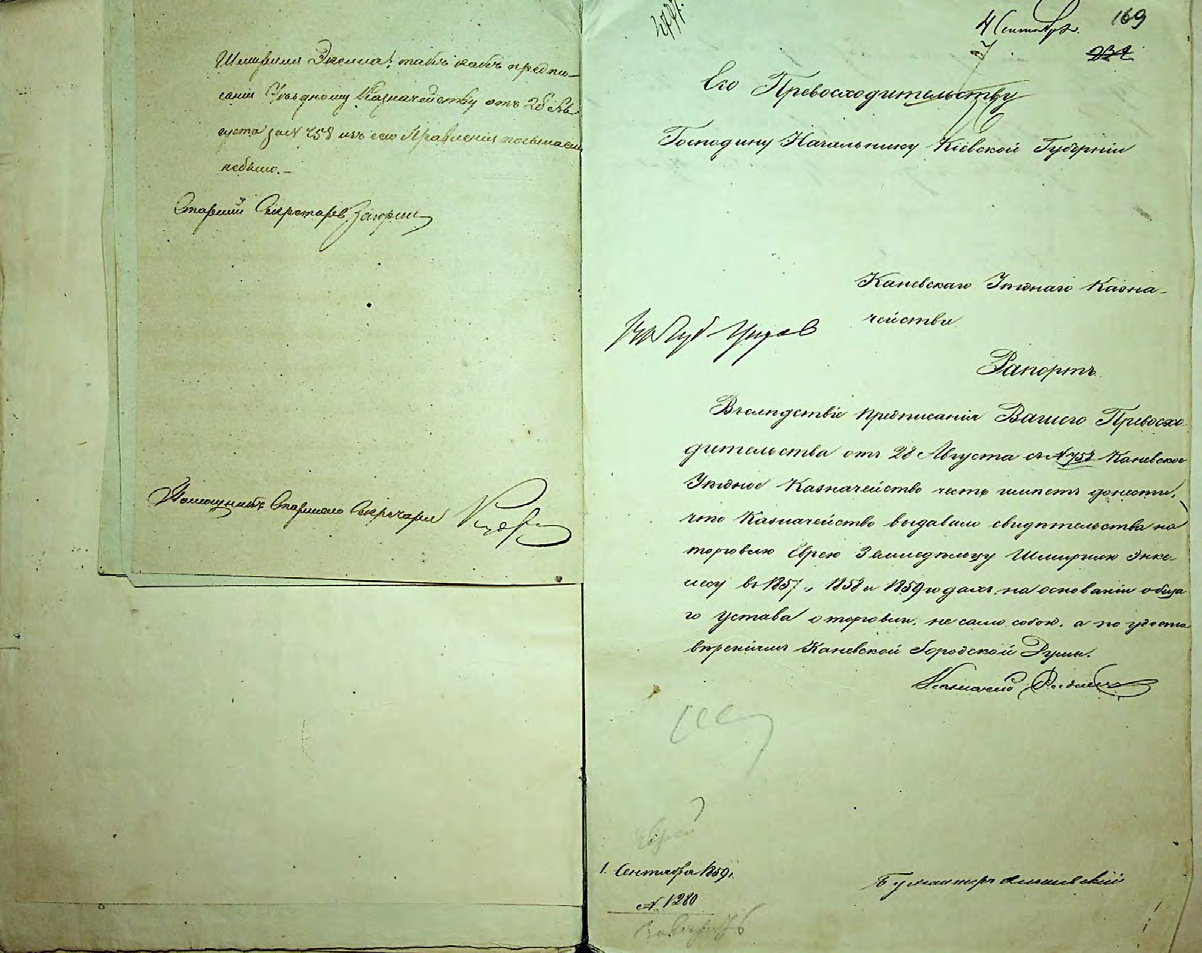 Шмириля Энкеля! такъ какъ предпи-
саніи Уѣздному Казначейству отъ 28 Ав-
густа за N 758 изъ сего Управленія посылаемо
небыло.-
Старшій Секретарь
Помощникъ Старшаго Секретаря
4 Сентября.
169
Его Превосходительству
Господину Начальнику Кіевской Губерніи
Каневскаго Уѣзднаго Казна-
чейства
Рапортъ.
Вслѣдствіе предписанія Вашего Превосхо
дительства отъ 28 Августа за N 758 Каневское
Уѣздное Казначейство честь имѣетъ донести,
что Казначейство выдавало свидѣтельства на
торговлю Еврею Земледѣльцу Шмирилю Энке-
лю въ 1857, 1858 и 1859 годахъ, на основаніи обща
го устава о торговли, не само собою, а по удосто
вѣреніямъ Каневской Городской Думы.
Казначей
1. Сентября 1859.
N. 1280
Бухгалтеръ